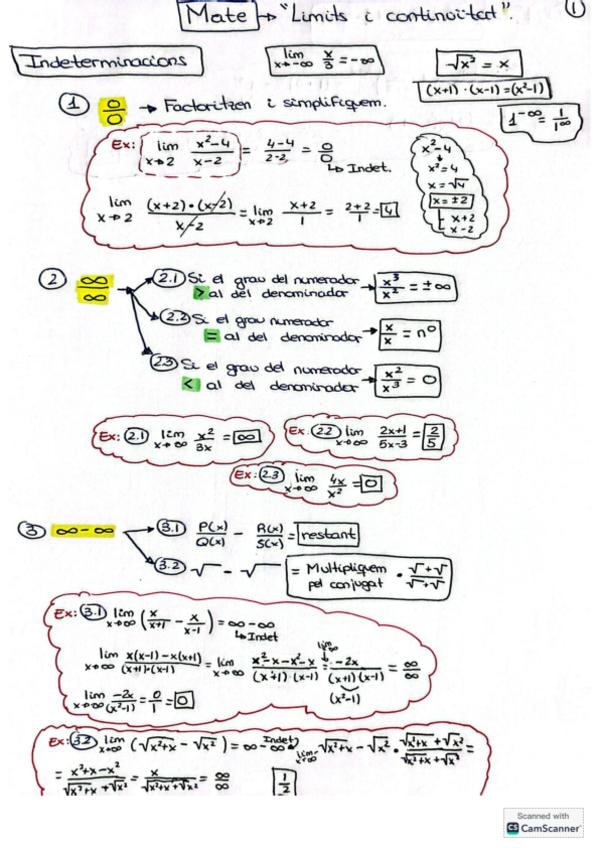 Mate → "Límits i continuïtat".
1
Indeterminacions
lim x→-∞ x/3 = -∞
√x² = x
(x+1)·(x-1)=(x²-1)
1^-∞ = 1/1^∞
1 0/0 → Factoritzem i simplifiquem.
Ex: lim x→2 x²-4/x-2 = 4-4/2-2 = 0/0
↳ Indet.
lim x→2 (x+2)·(x-2)/x-2 = lim x→2 x+2/1 = 2+2/1 = 4
x²-4
↓
x²=4
x=√4
x=±2
x+2
x-2
2 ∞/∞
2.1 Si el grau del numerador
> al del denominador → x³/x² = ±∞
2.2 Si el grau numerador
= al del denominador → x/x = nº
2.3 Si el grau del numerador
< al del denominador → x²/x³ = 0
Ex: 2.1 lim x→∞ x²/3x = ∞
Ex. 2.2 lim x→∞ 2x+1/5x-3 = 2/5
Ex: 2.3 lim x→∞ 4x/x² = 0
3 ∞-∞
3.1 P(x)/Q(x) - R(x)/S(x) = restant
3.2 √ - √ = Multipliquem
pel conjugat · √+√/√+√
Ex: 3.1 lim x→∞ (x/x+1 - x/x-1) = ∞-∞
↳ Indet
lim x→∞ x(x-1)-x(x+1)/(x+1)·(x-1) = lim x→∞ x²-x-x²-x/(x+1)·(x-1) = -2x/(x+1)(x-1) = ∞/∞
(x²-1)
lim x→∞ -2x/(x²-1) = 0/1 = 0
Ex: 3.2 lim x→∞ (√x²+x - √x²) = ∞-∞ Indet lim x→∞ √x²+x - √x² · √x²+x + √x²/√x²+x + √x² =
= x²+x-x²/√x²+x + √x² = x/√x²+x + √x² = ∞/∞
1/2
Scanned with
CS CamScanner